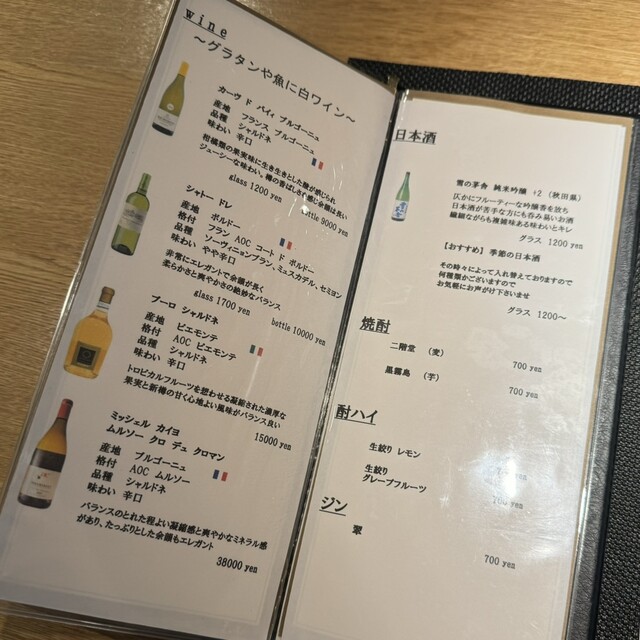 wine
～グラタンや魚に白ワイン～
カーヴ ド バイィ ブルゴーニュ
産地 フランス ブルゴーニュ
品種 シャルドネ
味わい 辛口
柑橘類の果実味に生き生きとした酸が感じられ
ジューシーな味わい。樽の香ばしさを感じ余韻は長い
glass 1200 yen bottle 9000 yen
シャトー ドレ
産地 ボルドー
格付 フラン AOC コート ド ボルドー
品種 ソーヴィニョンブラン、ミュスカデル、セミヨン
味わい やや辛口
非常にエレガントで余韻が長く
柔らかさと爽やかさの絶妙なバランス
glass 1700 yen bottle 10000 yen
ブーロ シャルドネ
産地 ピエモンテ
格付 AOC ピエモンテ
品種 シャルドネ
味わい 辛口
トロピカルフルーツを想わせる凝縮された濃厚な
果実と新樽の甘く心地よい風味がバランス良い
15000 yen
ミッシェル カイヨ
ムルソー クロ デュ クロマン
産地 ブルゴーニュ
格付 AOC ムルソー
品種 シャルドネ
味わい 辛口
バランスのとれた程よい凝縮感と爽やかなミネラル感
があり、たっぷりとした余韻もエレガント
38000 yen
日本酒
雪の茅舎 純米吟醸 +2 (秋田県)
仄かにフルーティーな吟醸香を放ち
日本酒が苦手な方にも呑み易いお酒
繊細ながらも複雑味ある味わいとキレ
グラス 1200 yen
【おすすめ】季節の日本酒
その時々によって入れ替えておりますので
何種類かございますので
お気軽にお声がけ下さいませ
グラス 1200～
焼酎
二階堂 (麦)
700 yen
黒霧島 (芋)
700 yen
酎ハイ
生絞り レモン
生絞り
グレープフルーツ
700 yen
ジン
翠
700 yen